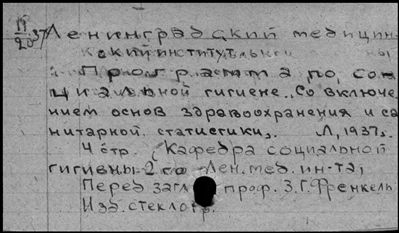 II
20 37 Ленинградский медицин-
ский институт.
Программа по со-
циальной гигиене со включе-
нием основ здравоохранения и са-
нитарной статистики. Л, 1937г.
4 стр. (Кафедра социальной
гигиены 2го Лен. мед. ин-та,
Перед загл проф. З.Г.Френкель
Изд. стеклогр.